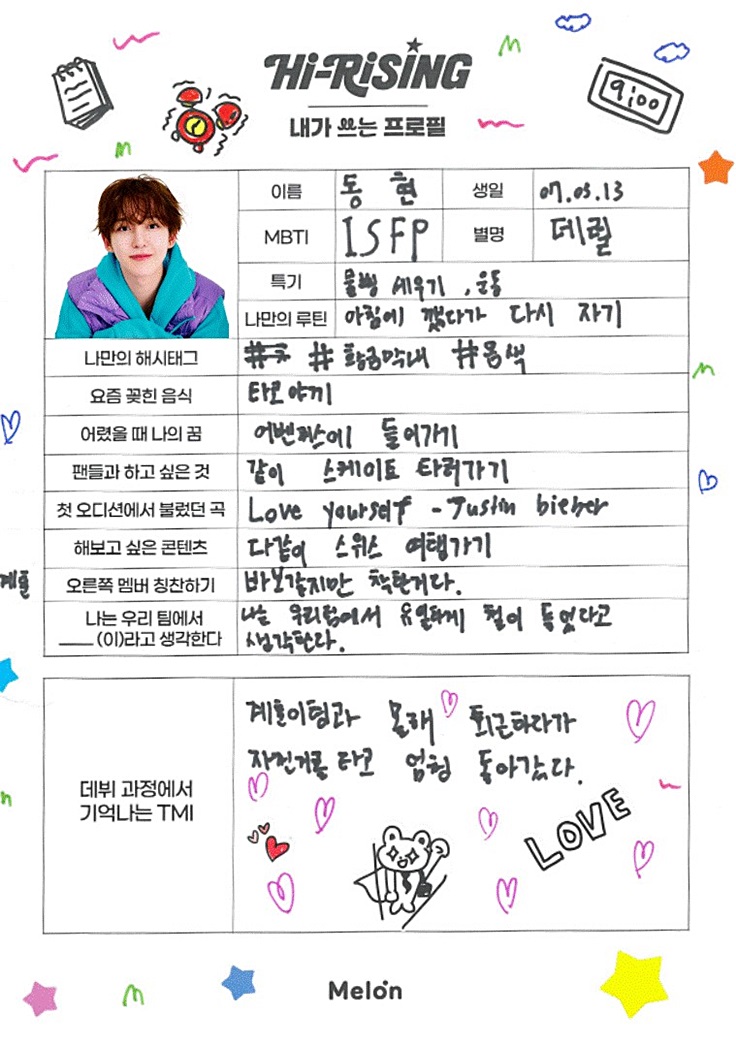 Hi-RiSiNG
내가 쓰는 프로필
9:00
이름 동현 생일 07.05.13
MBTI ISFP 별명 데릴
특기 물병 세우기, 운동
나만의 루틴 아침에 깼다가 다시 자기
나만의 해시태그 # #황금막내 #음색
요즘 꽂힌 음식 타코야끼
어렸을 때 나의 꿈 어벤져스에 들어가기
팬들과 하고 싶은 것 같이 스케이트 타러가기
첫 오디션에서 불렀던 곡 Love yourself - Justin bieber
해보고 싶은 콘텐츠 다같이 스위스 여행가기
계훈 오른쪽 멤버 칭찬하기 바보같지만 착한거다.
나는 우리 팀에서 나는 우리팀에서 유일하게 철이 들었다고
____ (이)라고 생각한다 생각한다.
계훈이형과 몰래 퇴근하다가
자전거를 타고 엄청 돌아갔다.
데뷔 과정에서
기억나는 TMI
LOVE
Melon